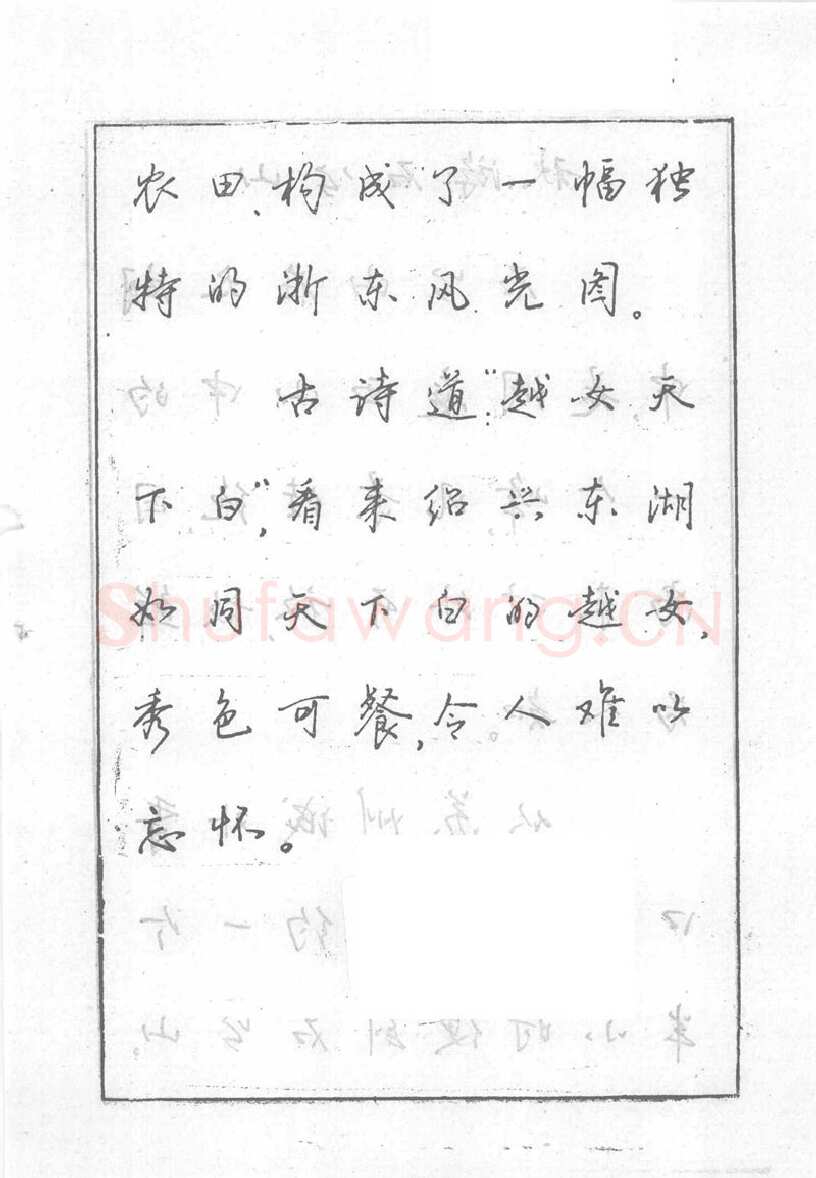 农田，构成了一幅独
特的浙东风光图。
古诗道：“越女天
下白”，看来绍兴东湖
如同天下白的越女，
秀色可餐，令人难以
忘怀。
Shufawang.CN